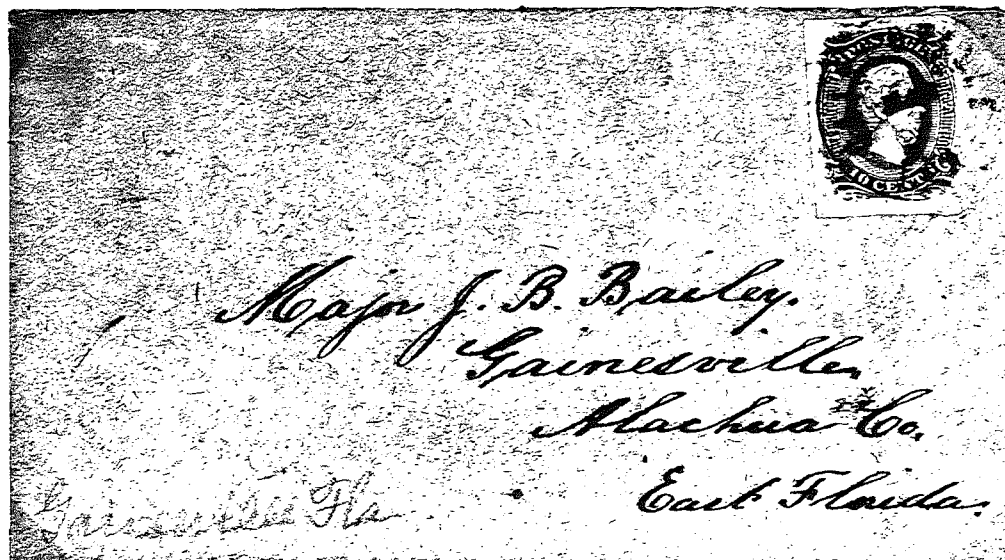 POSTAGE
10 CENTS
Major J. B. Bailey.
Gainesville,
Alachua Co.
East Florida.
Gainesville Fla